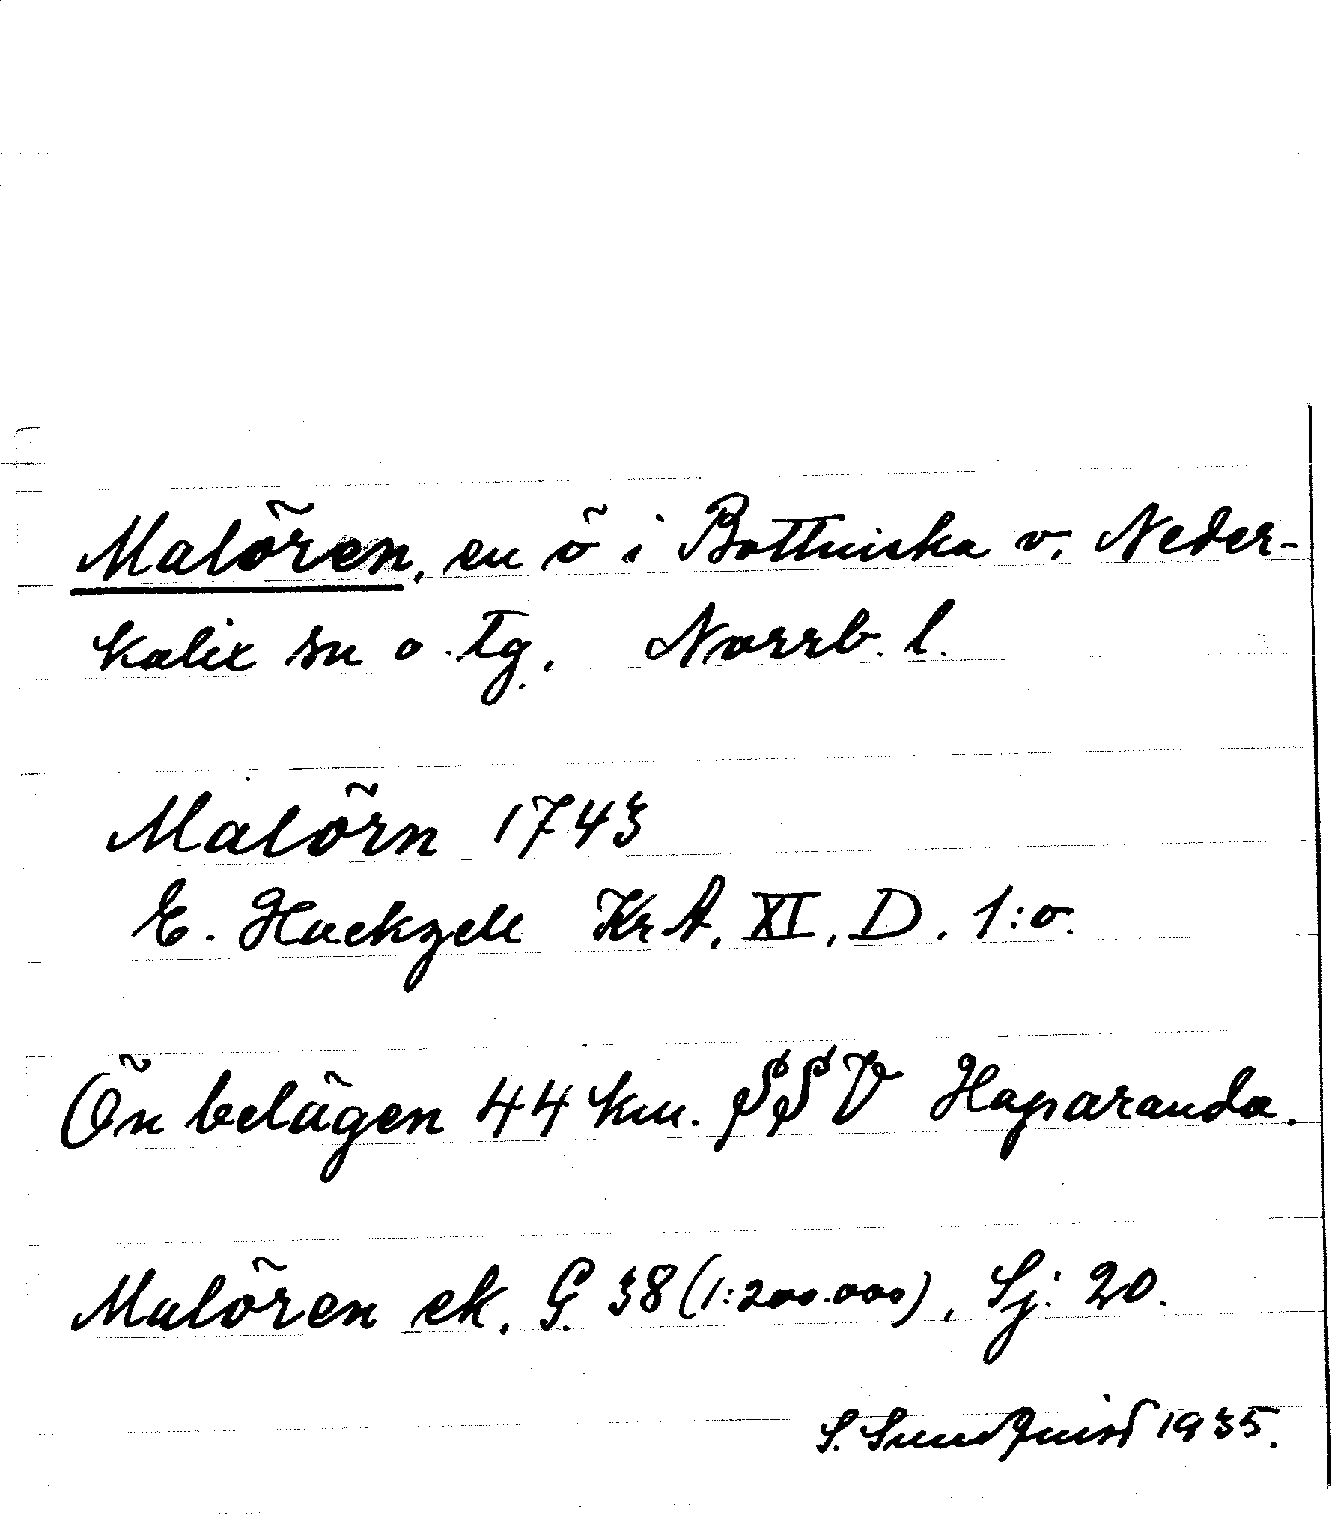 Malören, en ö i Bottniska v. Neder-
kalix sn o. tg. Norrb. l.
Malörn 1743
E. Hackzell KrA, XI, D. 1:o.
Ön belägen 44 km. SSV Haparanda.
Malören ek. G. 38 (1:200.000), Sj: 20.
S. Sundquist 1935.